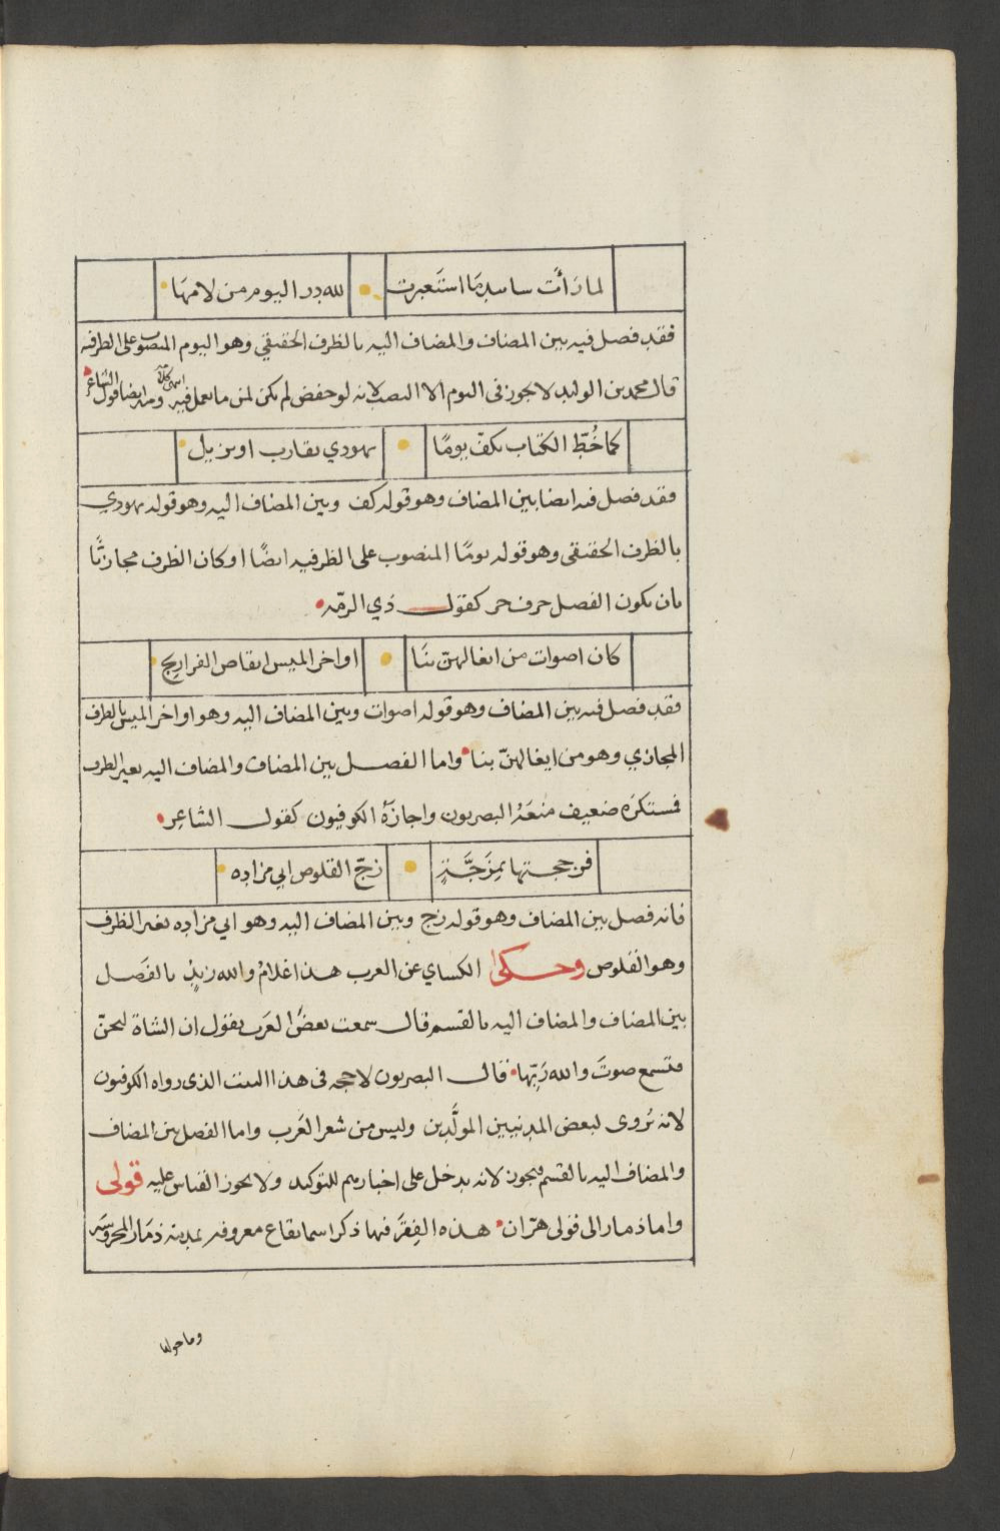 لما رَأَت ساتيدمَا استَعبرت • لله در اليوم من لامهَا
فقد فصل فيه بين المضاف والمضاف اليه بالظرف الحقيقي وهو اليوم المنصوب على الظرفيه
قال محمد بن الوليد لا يجوز في اليوم الا النصب لانه لو خفض لم يكن لمن ما يعمل فيه ومنه ايضا قول الشاعر
كما خُطّ الكتاب بكفّ يومًا • يهودي يقارب او يزيل
فقد فصل فيه ايضا بين المضاف وهو قوله كف وبين المضاف اليه وهو قوله يهودي
بالظرف الحقيقي وهو قوله يومًا المنصوب على الظرفيه ايضًا او كان الظرف مجازيًّا
بان يكون الفصل حرف جر كقول ذي الرمّه •
كان اصوات من ايغالهنّ بنَا • اواخر الميس انقاض الفراريج
فقد فصل فيه بين المضاف وهو قوله اصوات وبين المضاف اليه وهو اواخر الميس بالظرف
المجازي وهو من ايغالهنّ بنا • واما الفصل بين المضاف والمضاف اليه بغير الظرف
فمستكرَه ضعيف منعَهُ البصريون واجازهُ الكوفيون كقول الشاعِر •
فزججتها بمِزَجَّةٍ • زجّ القلوص ابي مزاده
فانه فصل بين المضاف وهو قوله زج وبين المضاف اليه وهو ابي مزاده بغير الظرف
وهو القلوص وحكى الكساي عن العرب هذا غلامُ والله زيدٍ بالفَصل
بين المضاف والمضاف اليه بالقسم قال سمعت بعضَ العَرب يقول ان الشاة لتجترّ
فتسمع صوتَ والله رَبّها • فقال البصريون لا حجه في هذا البيت الذي رواه الكوفيون
لانه يُروى لبعض المدنيين المولَّدين وليس من شعر العَرب واما الفصل بين المضاف
والمضاف اليه بالقسَم فيجوز لانه يدخل على اخبارهم للتوكيد ولا يجوز القياس عليه قولى
واما ذمار الى قولى هرّان • هذه الفِقرَ فيها ذكر اسما بقاع معروفه بمدينة ذمَار المحروسَه
وما حولها